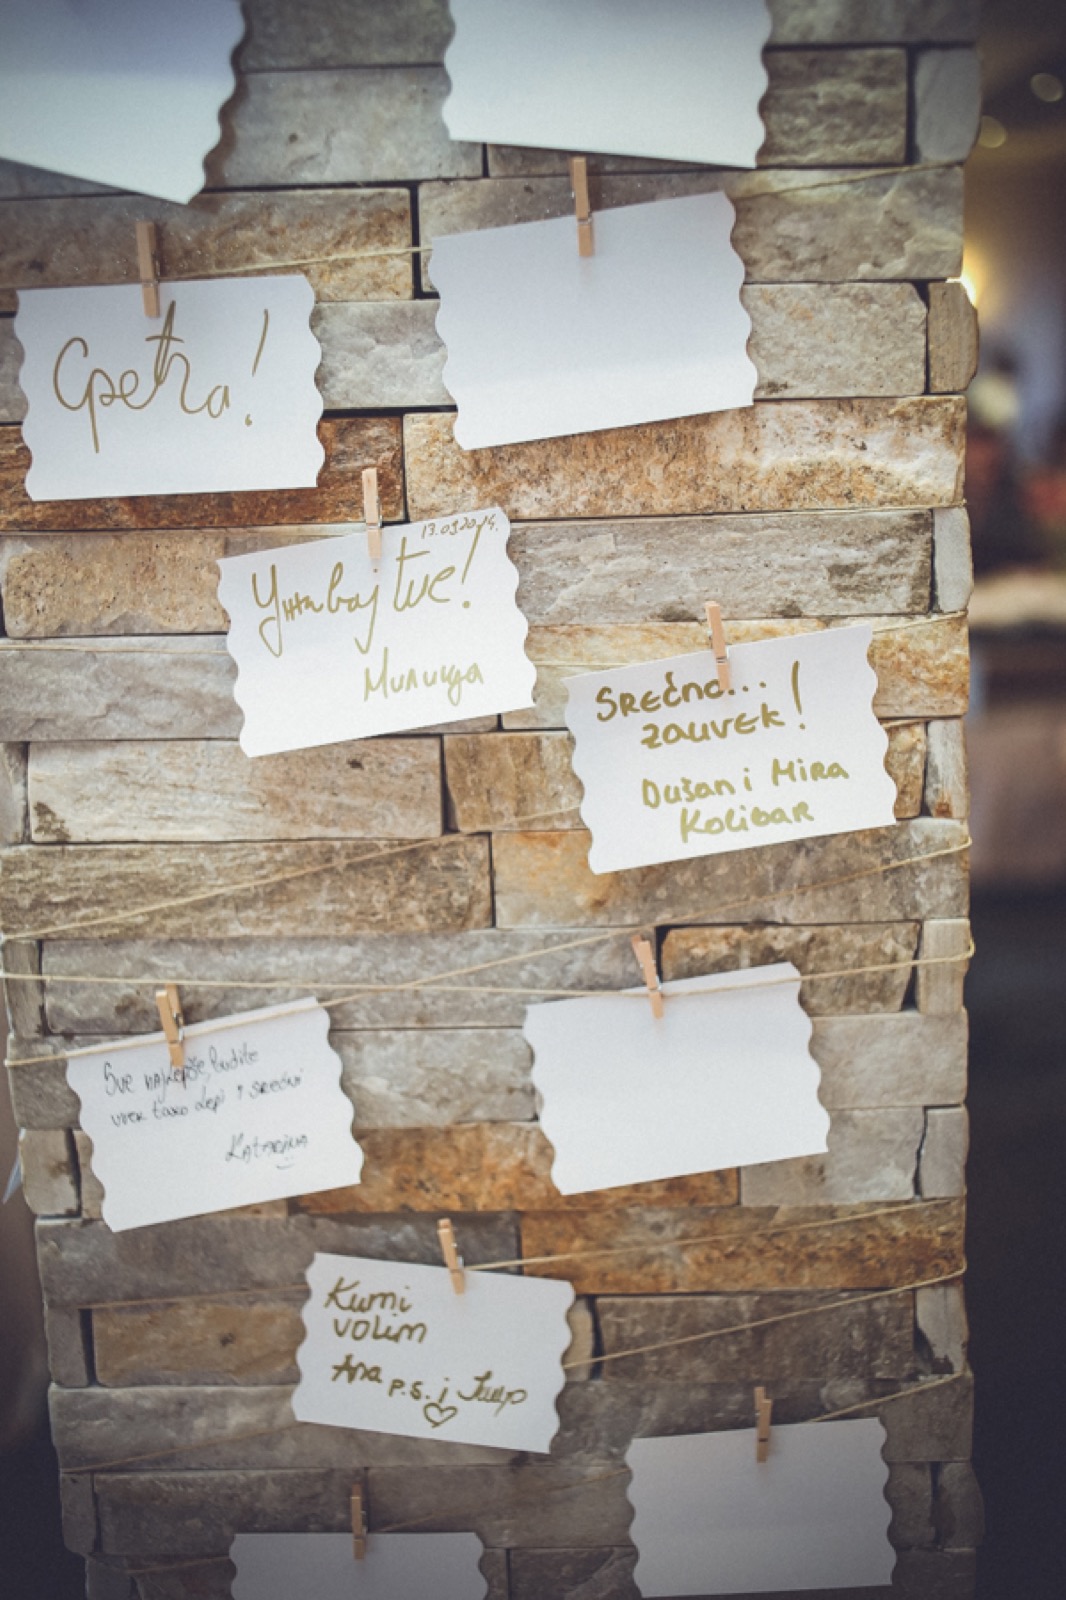 Срећа!
13.09.2014.
Уживајте!
Милица
SREĆNO...
ZAUVEK!
Dušan i Mira
Kolibar
Sve najlepše, budite
uvek tako lepi i srećni
Katarina
Kumi
volim
Ana P.S. i